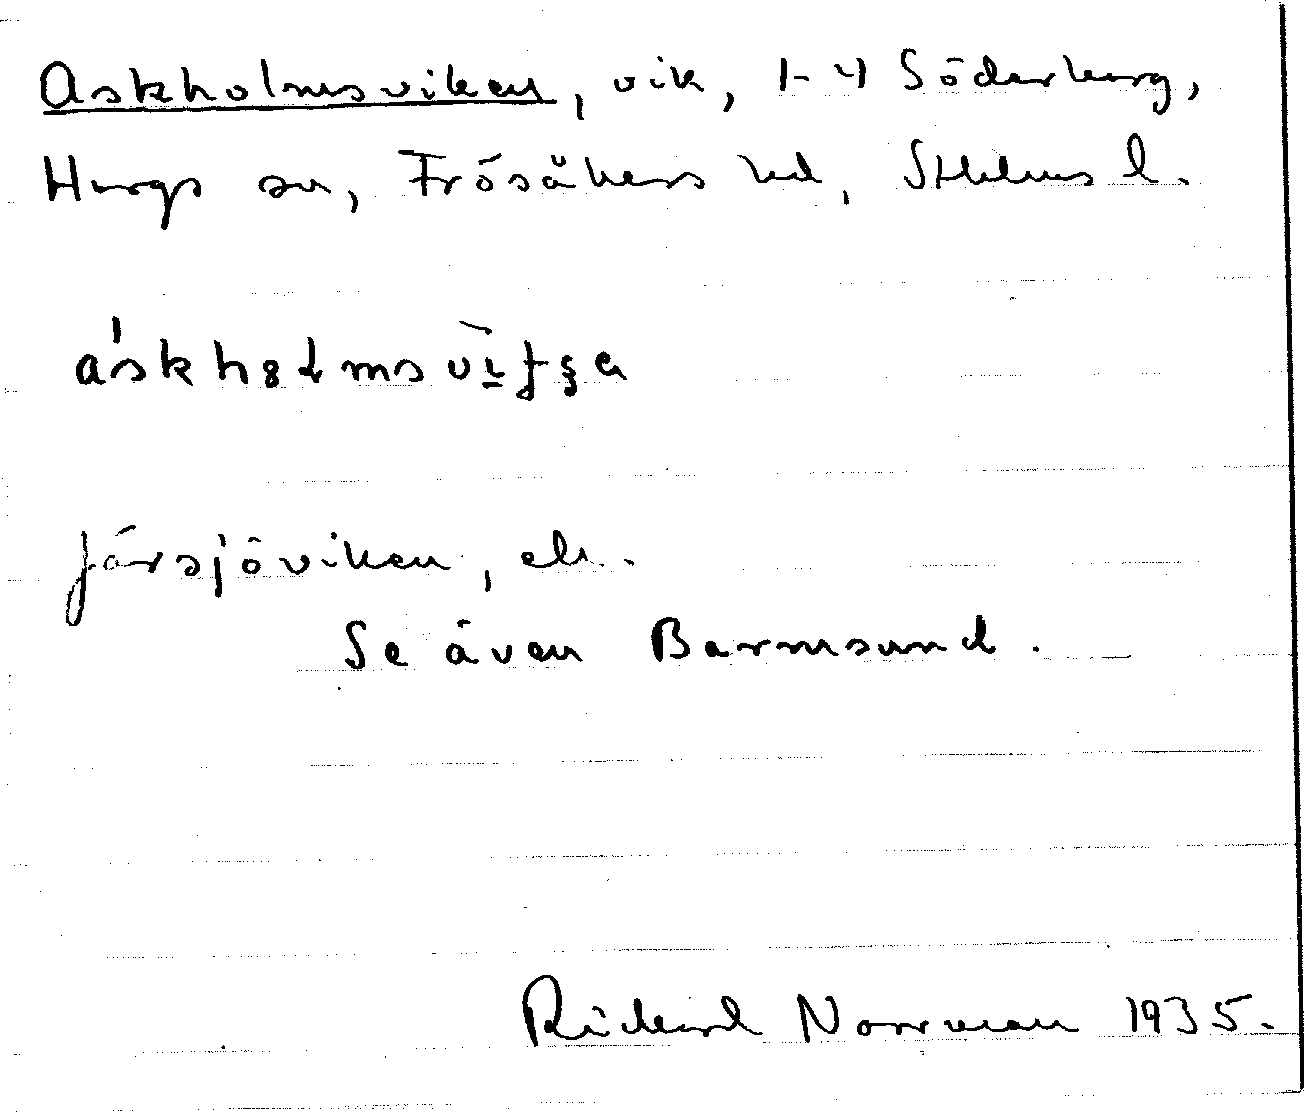 Askholmsviken, vik, 1-4 Söderberg,
Hargs sn, Frösåkers hd, Sthlms l.
Järsjöviken, ek.
Se även Barmsund.
Richard Norrman 1935.